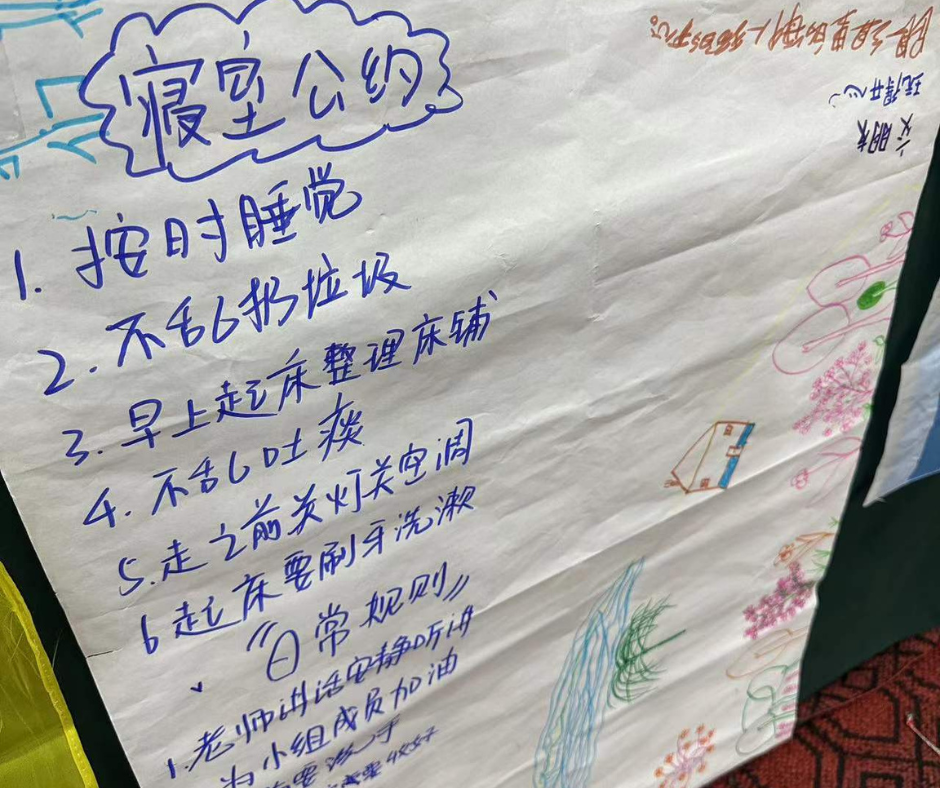 寝室公约
1. 按时睡觉
2. 不乱扔垃圾
3. 早上起床整理床铺
4. 不乱吐痰
5. 走之前关灯关空调
6 起床要刷牙洗漱
《日常规则》
1. 老师讲话安静听讲
为小组成员加油
交朋友
玩得开心